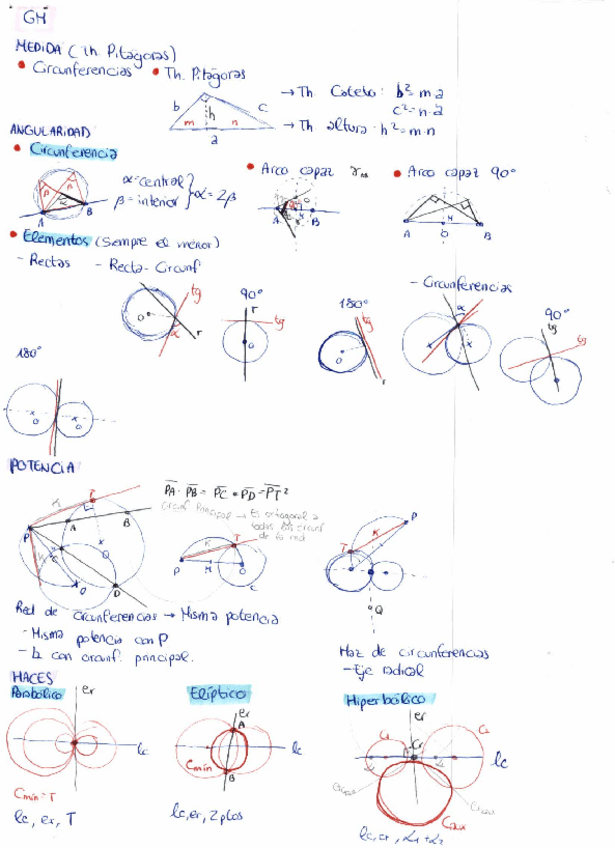 GM
MEDIDA (Th. Pitágoras)
• Circunferencias • Th. Pitágoras
b c h m n a
→ Th Cateto: b² = m·a
c² = n·a
→ Th altura: h² = m·n
ANGULARIDAD
• Circunferencia
α = central
β = interior } α = 2β
• Arco capaz
• Arco capaz 90°
A B
A O B
• Elementos (Siempre el menor)
- Rectas - Recta - Circunf
- Circunferencias
O tg α r
90° r tg O
180° tg O r
α
90° tg tg
180°
O O
POTENCIA
PA · PB = PC · PD = PT²
circunf principal → Es ortogonal a
todas las circunf
de la red
P K T A B O C D
P K T M O C
P K T O Q
Red de circunferencias → Misma potencia
- Misma potencia con P
con circunf. principal.
Haz de circunferencias
- Eje radical
HACES
Parabólico
er
lc
Cmín = T
lc, er, T
Elíptico
er
A
lc
Cmín
B
lc, er, 2 ptos
Hiperbólico
er
C1 C2
Cr
lc
Caux
lc, er,